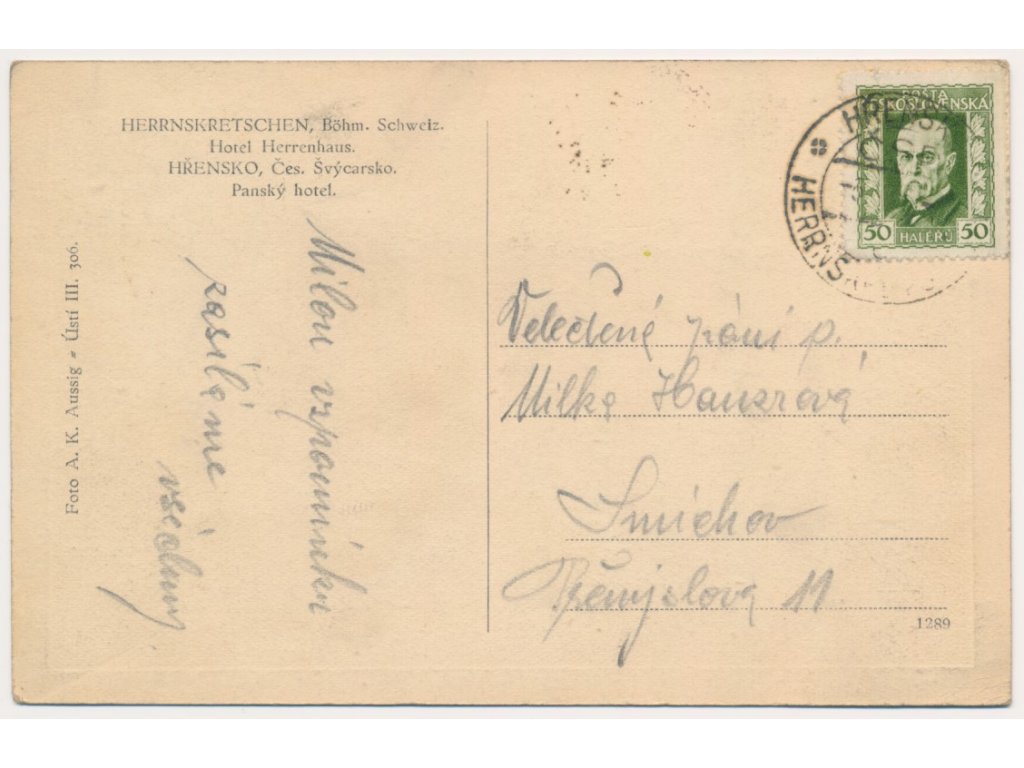 HERRNSKRETSCHEN, Böhm. Schweiz.
Hotel Herrenhaus.
HŘENSKO, Čes. Švýcarsko.
Panský hotel.
Foto A. K. Aussig - Ústí III. 306.
Milou vzpomínku
zasíláme
všichni
POŠTA
ČESKOSLOVENSKÁ
50 HALÉŘŮ 50
HŘENSKO
HERRNSKRETSCHEN
Veleděná paní p.
Milka Hauzrová
Smíchov
Přemyslova 11
1289